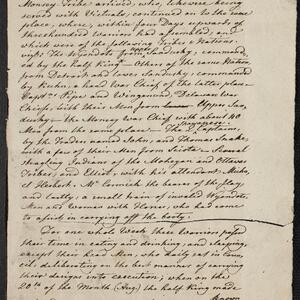 Monsey Tribe arrived, who, likewise being
served with Victuals, continued on to the same
place; where, within four Days upwards of
three hundred Warriors had assembled, and
which were of the following Tribes & Nations
Sandusky, command-
ed by the half King — Others of the same Nation
from Detroit and lower Sandusky, commanded
by Kuhn, a head War Chief of the latter place —
Captn Pipe and Wingenund, Delaware War
Chiefs, with their Men from Upper San-
dusky — the Monsey War Chief with about 40
Men from the same place — The 2 Captains
by the Traders named John, and Thomas Snake,
with a few of their Men from Scioto — Several
straggling Indians of the Mohegan and Ottawa
Tribes, and Elliot, with his attendant
Mc Cormick the bearer of the flag,
and lastly; a small train of invalid Wyandots,
Men and Women with Horses, who had come
to assist in carrying off the booty.
For one whole Week these Warriors, passed
their time in eating and drinking, and sleeping,
except their head Men, who daily sat in Coun-
cil deliberating on the best manner of carrying
their designs into execution; when on the
20th of the Month (Aug) the half King made
known